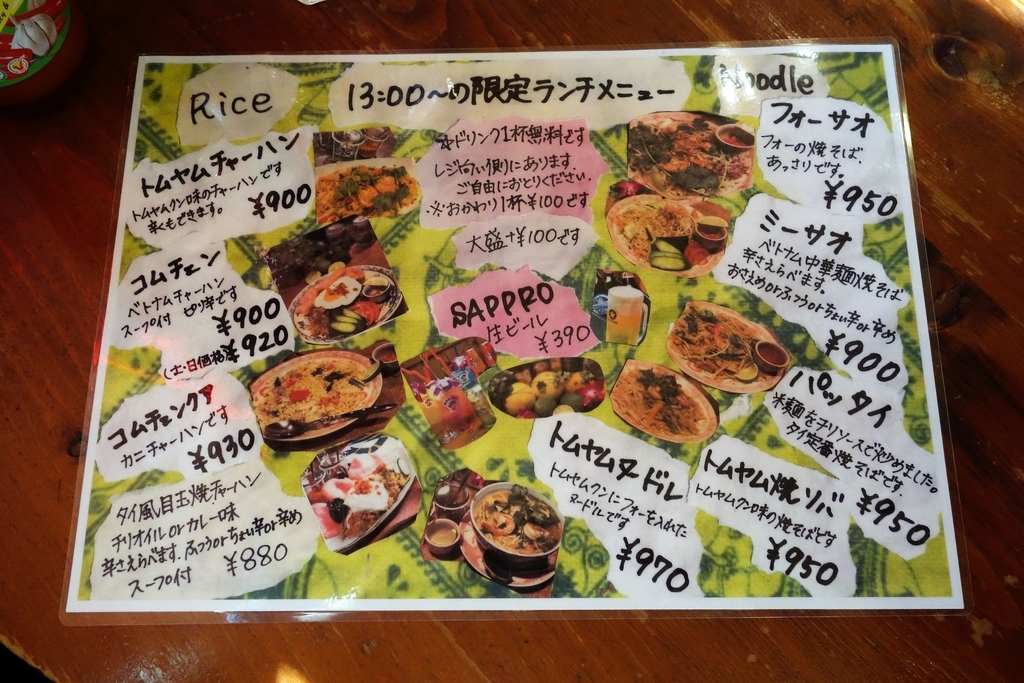 Rice
13:00〜の限定ランチメニュー
Noodle
トムヤムチャーハン
トムヤムクン味のチャーハンです
辛くもできます。
¥900
コムチェン
ベトナムチャーハン
スープ付 ピリ辛です
¥900
(土・日価格) ¥920
コムチェンクア
カニチャーハンです
¥930
タイ風目玉焼チャーハン
チリオイルorカレー味
辛さえらべます。ふつうorちょい辛or辛め
スープ付 ¥880
ドリンク1杯無料です
レジ向い側にあります。
ご自由におとりください。
※おかわり1杯¥100です
大盛+¥100です
SAPPRO
生ビール
¥390
フォーサオ
フォーの焼そば。
あっさりです。
¥950
ミーサオ
ベトナム中華麺焼そば
辛さえらべます。
おさえめorふつうorちょい辛or辛め
¥900
パッタイ
米麺をチリソースで炒めました。
タイ定番焼そばです。
¥950
トムヤムヌードル
トムヤムクンにフォーを入れた
ヌードルです
¥970
トムヤム焼ソバ
トムヤムクン味の焼そばです
¥950